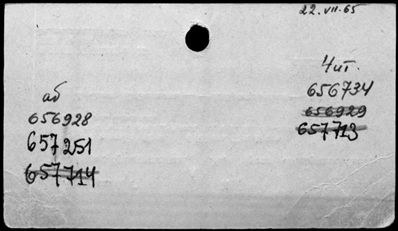 22.VII.65
аб
656928
657251
657714
Чит.
656734
656929
657713